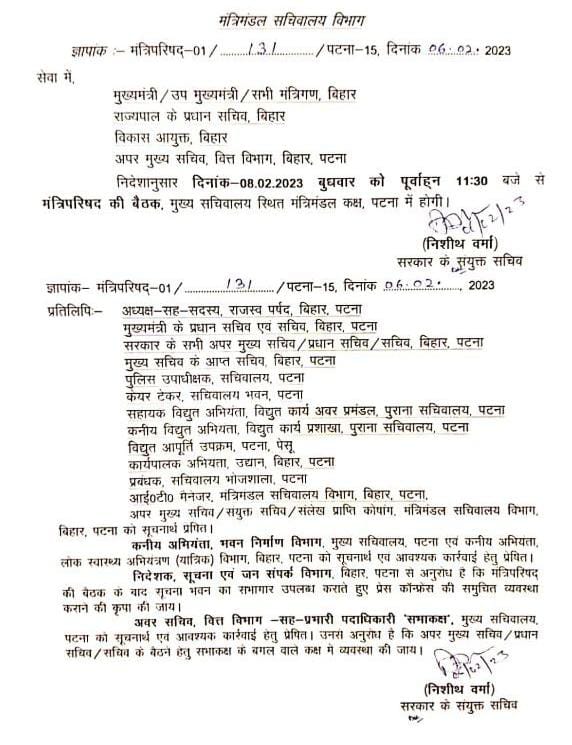 मंत्रिमंडल सचिवालय विभाग
ज्ञापांक :– मंत्रिपरिषद–01 / ...131... / पटना–15, दिनांक 06.02. 2023
सेवा में,
मुख्यमंत्री / उप मुख्यमंत्री / सभी मंत्रिगण, बिहार
राज्यपाल के प्रधान सचिव, बिहार
विकास आयुक्त, बिहार
अपर मुख्य सचिव, वित्त विभाग, बिहार, पटना
निदेशानुसार दिनांक–08.02.2023 बुधवार को पूर्वाह्न 11:30 बजे से
मंत्रिपरिषद की बैठक, मुख्य सचिवालय स्थित मंत्रिमंडल कक्ष, पटना में होगी।
(निशीथ वर्मा)
सरकार के संयुक्त सचिव
ज्ञापांक– मंत्रिपरिषद–01 / ...131... / पटना–15, दिनांक 06.02. , 2023
प्रतिलिपिः– अध्यक्ष–सह–सदस्य, राजस्व पर्षद, बिहार, पटना
मुख्यमंत्री के प्रधान सचिव एवं सचिव, बिहार, पटना
सरकार के सभी अपर मुख्य सचिव / प्रधान सचिव / सचिव, बिहार, पटना
मुख्य सचिव के आप्त सचिव, बिहार, पटना
पुलिस उपाधीक्षक, सचिवालय, पटना
केयर टेकर, सचिवालय भवन, पटना
सहायक विद्युत अभियंता, विद्युत कार्य अवर प्रमंडल, पुराना सचिवालय, पटना
कनीय विद्युत अभियता, विद्युत कार्य प्रशाखा, पुराना सचिवालय, पटना
विद्युत आपूर्ति उपक्रम, पटना, पेसू
कार्यपालक अभियता, उद्यान, बिहार, पटना
प्रबंधक, सचिवालय भोजशाला, पटना
आई०टी० मैनेजर, मंत्रिमंडल सचिवालय विभाग, बिहार, पटना,
अपर मुख्य सचिव / संयुक्त सचिव / संलेख प्राप्ति कोषांग, मंत्रिमंडल सचिवालय विभाग,
बिहार, पटना को सूचनार्थ प्रषित।
कनीय अभियंता, भवन निर्माण विभाग, मुख्य सचिवालय, पटना एवं कनीय अभियता,
लोक स्वास्थ्य अभियंत्रण (यांत्रिक) विभाग, बिहार, पटना को सूचनार्थ एवं आवश्यक कार्रवाई हेतु प्रेषित।
निदेशक, सूचना एवं जन संपर्क विभाग, बिहार, पटना से अनुरोध है कि मंत्रिपरिषद्
की बैठक के बाद सूचना भवन का सभागार उपलब्ध कराते हुए प्रेस कॉन्फ्रेंस की समुचित व्यवस्था
कराने की कृपा की जाय।
अवर सचिव, वित्त विभाग –सह–प्रभारी पदाधिकारी 'सभाकक्ष', मुख्य सचिवालय,
पटना को सूचनार्थ एवं आवश्यक कार्रवाई हेतु प्रेषित। उनसे अनुरोध है कि अपर मुख्य सचिव / प्रधान
सचिव / सचिव के बैठने हेतु सभाकक्ष के बगल वाले कक्ष मे व्यवस्था की जाय।
(निशीथ वर्मा)
सरकार के संयुक्त सचिव